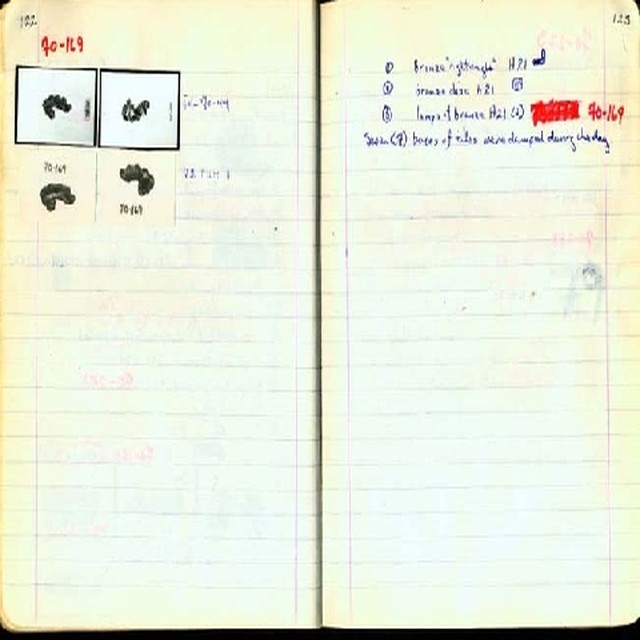 122
70-169
70-169
70-169
123
① Bronze "right angle" H21
② Bronze disc H21
③ lumps of bronze H21 (2) 70-169
Seven (7) boxes of tiles were dumped during the day